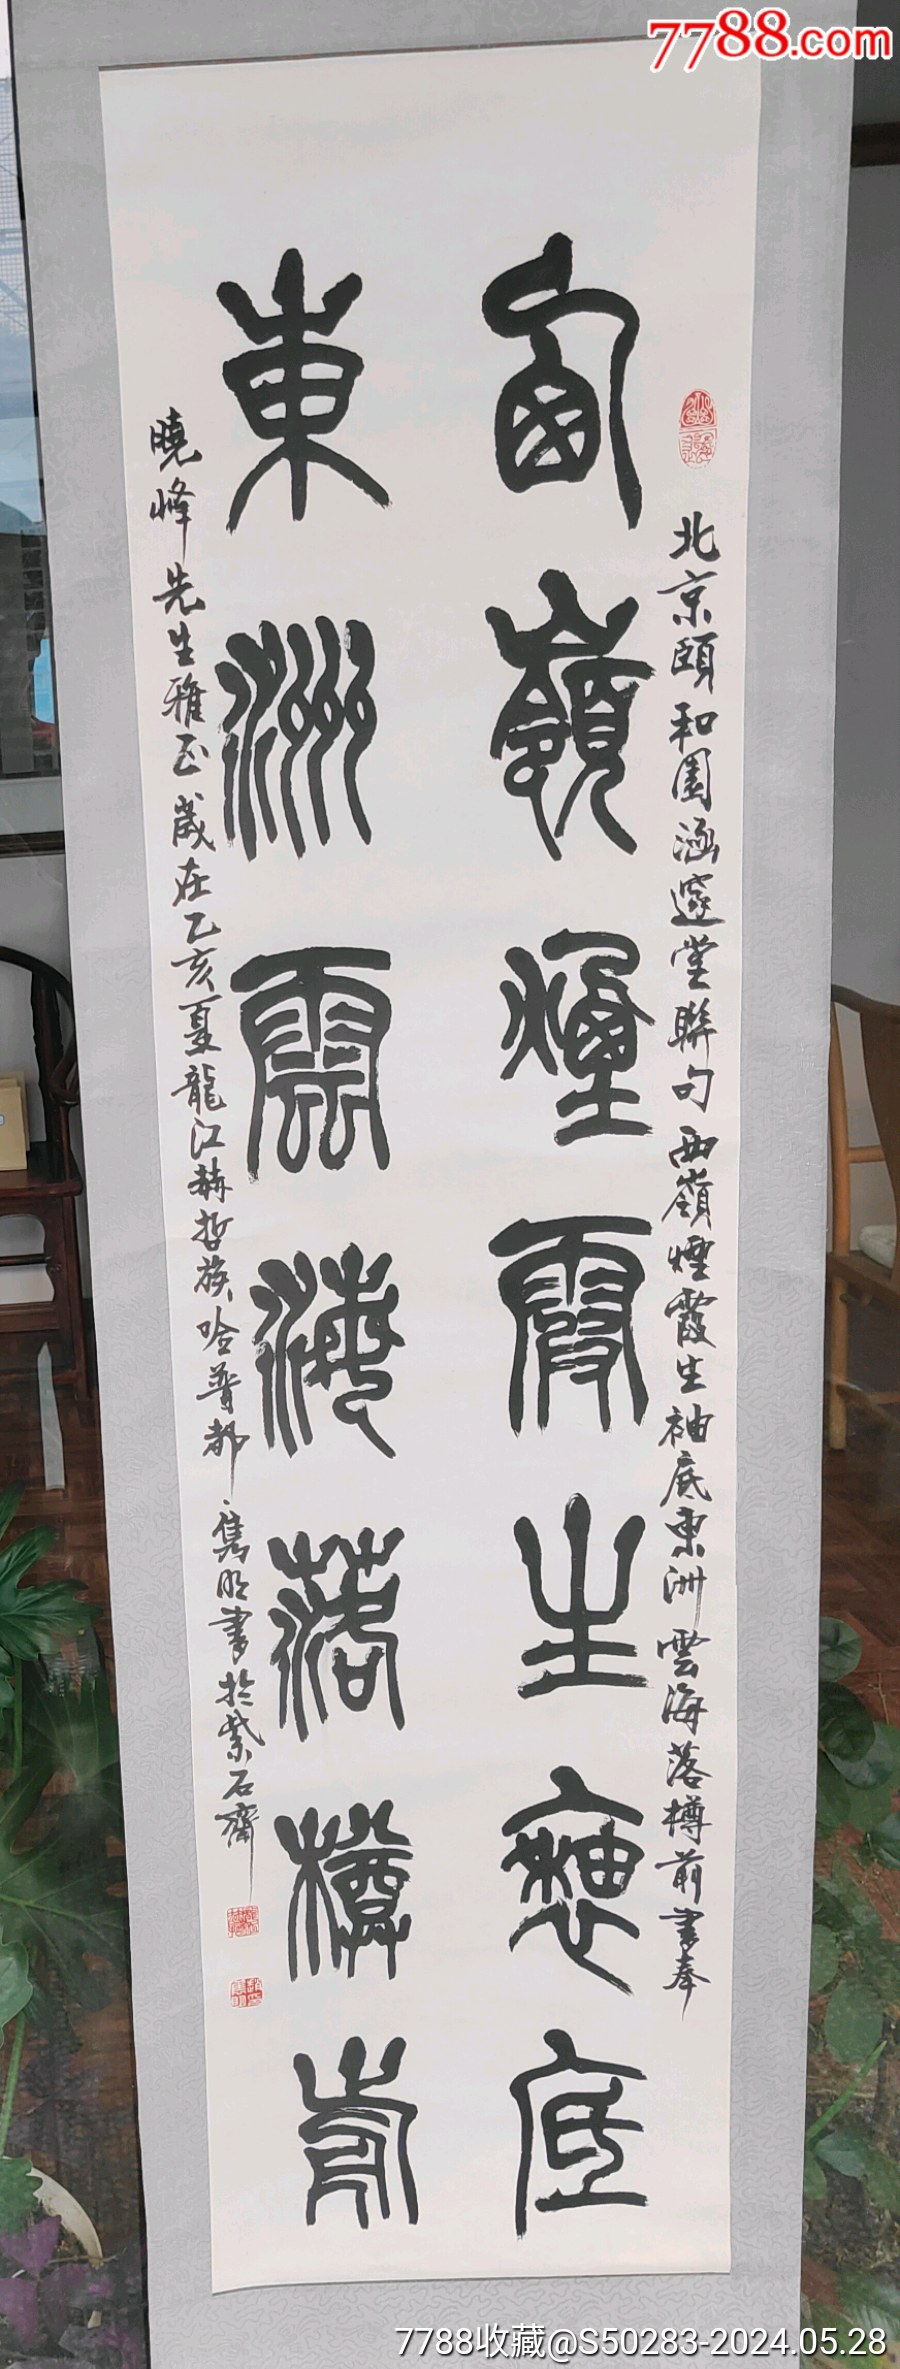 7788.com
西嶺煙霞生褎底
東洲雲海落樽前
北京頤和園涵邃堂聯句西嶺煙霞生袖底東洲雲海落樽前書奉
曉峰先生雅正歲在乙亥夏龍江赫哲族哈普都雋明書於紫石齋
7788收藏@S50283-2024.05.28